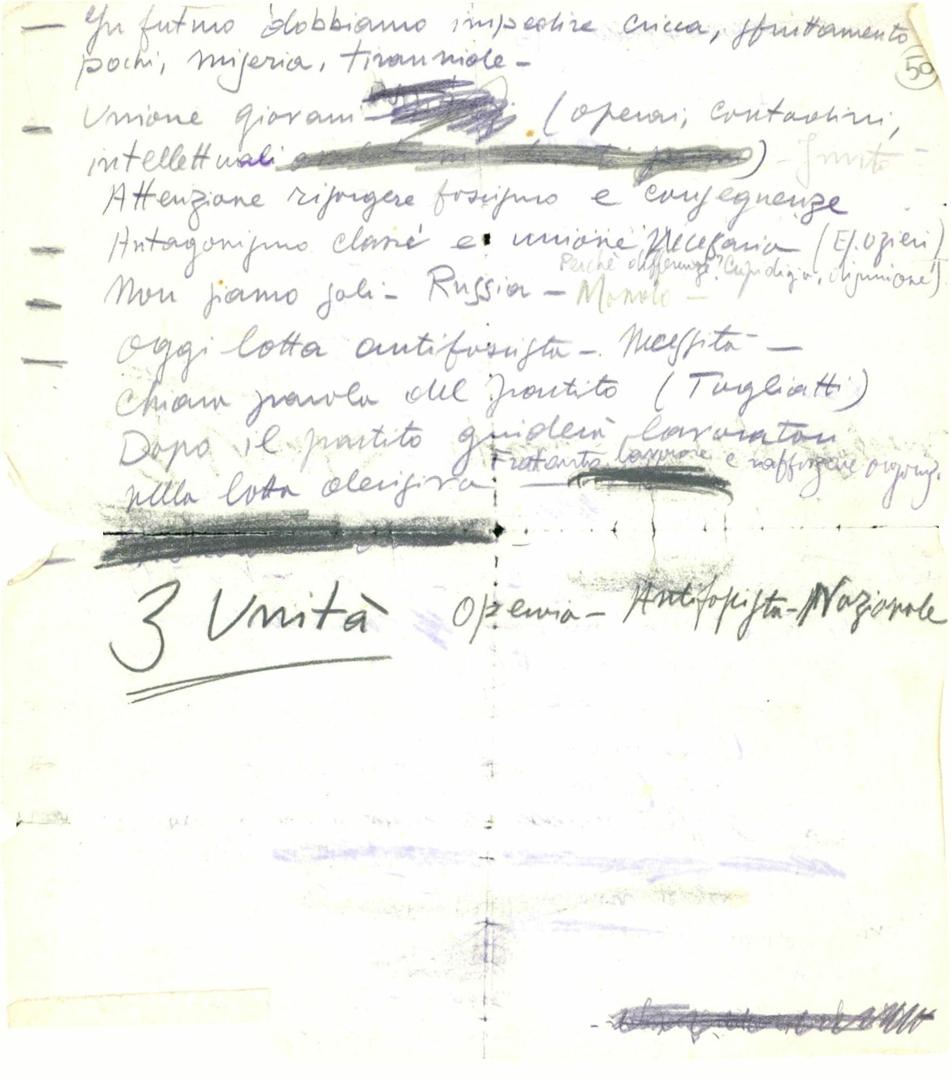 In futuro dobbiamo impedire cricca, sfruttamento
50
pochi, miseria, tirannide -
Unione giovani (operai, contadini,
intellettuali ) -
Attenzione risorgere fascismo e conseguenze
Antagonismo classi e unione necessaria (Es. Ozieri)
Perchè differenze? Cupidigia, disunione)
Non siamo soli - Russia - Mondo -
Oggi lotta antifascista - Necessità -
Chiara parola del partito (Togliatti)
Dopo il partito guiderà lavoratori
Frattanto lavorare e rafforzare organizz
nella lotta decisiva
3 Unità Operaia - Antifascista - Nazionale